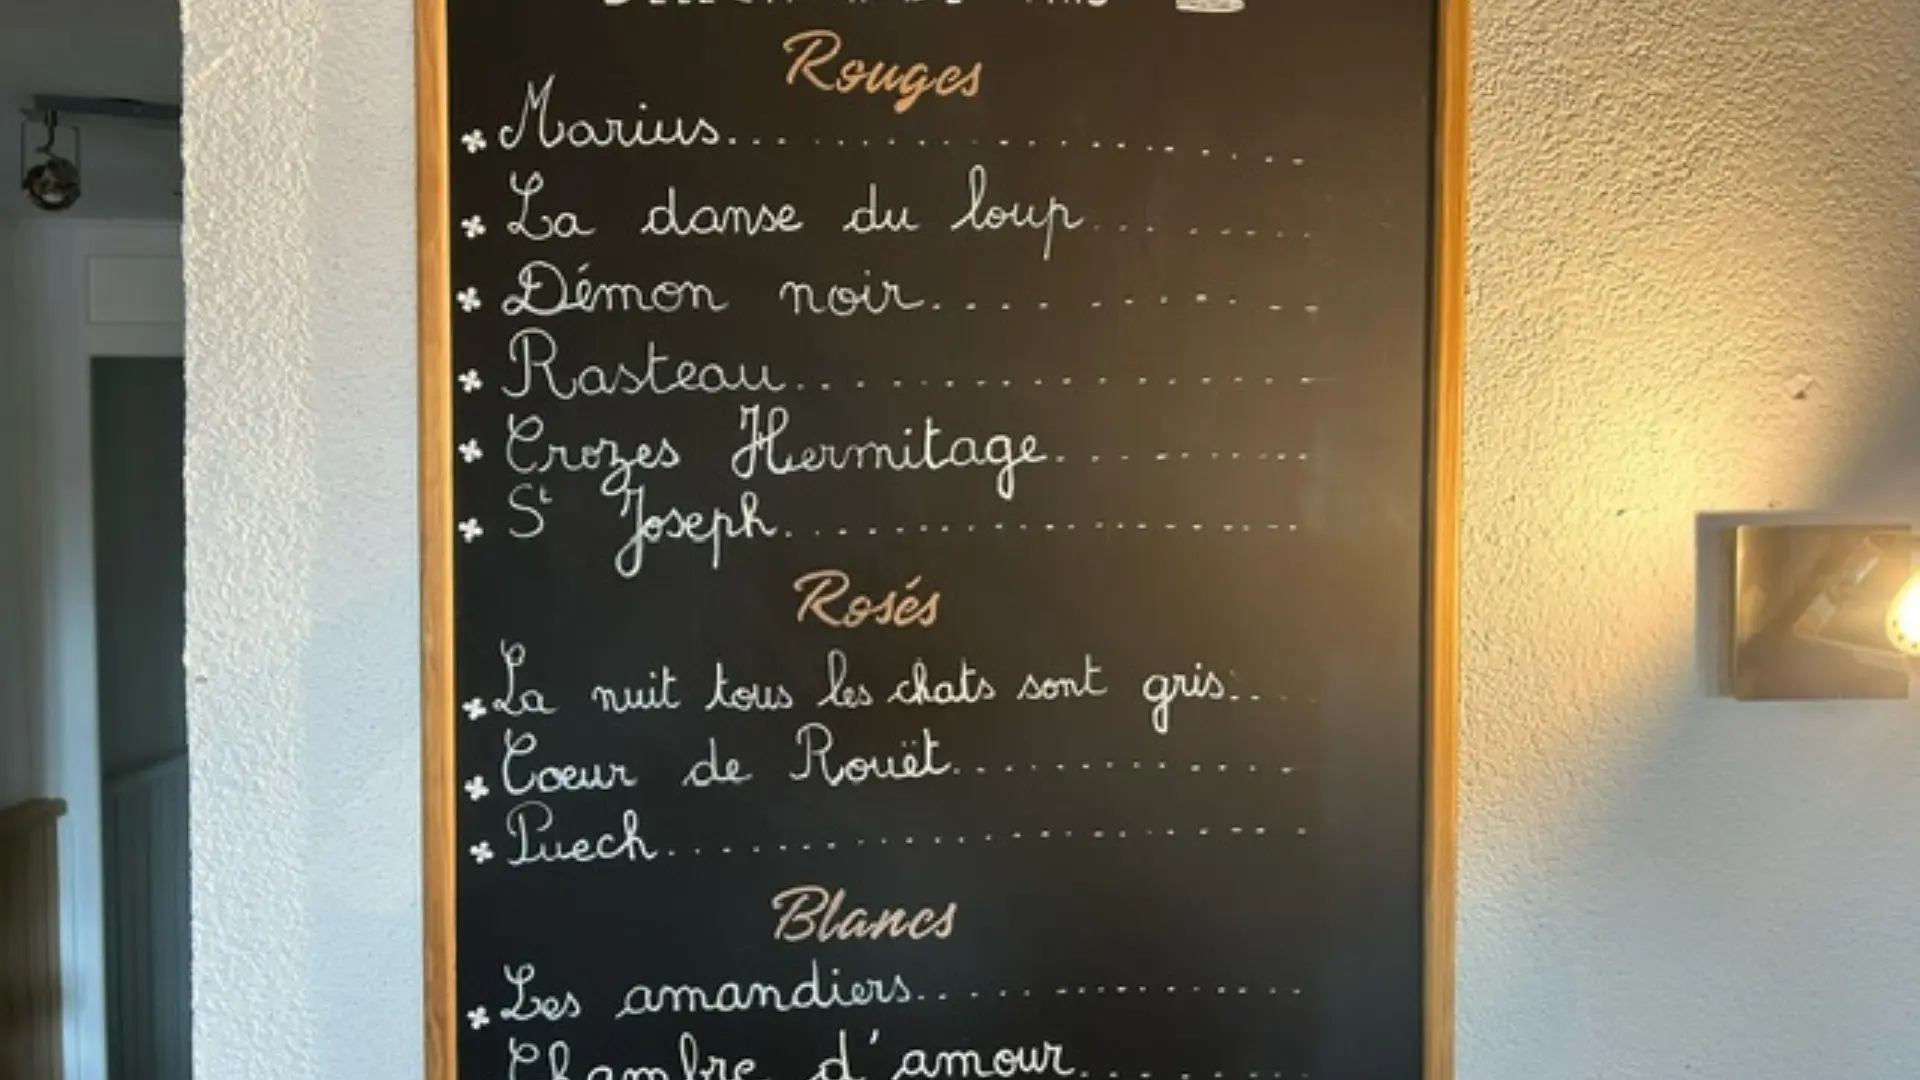 Rouges
Marius
La danse du loup
Démon noir
Rasteau
Crozes Hermitage
St Joseph
Rosés
La nuit tous les chats sont gris
Coeur de Rouët
Puech
Blancs
Les amandiers
Chambre d'amour